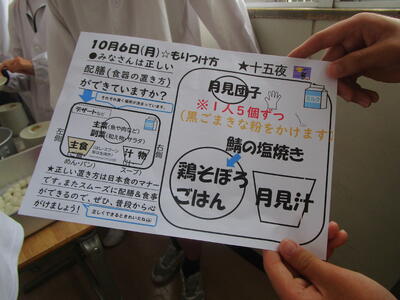 10月6日(月)☆もりつけ方
★十五夜
●みなさんは正しい
配膳(食器の置き方)
ができていますか?
それぞれ置く場所が決まっています。
デザートなど
主菜(魚や肉など)
副菜(和え物・サラダ)
左側
主食
汁物
右側
めん・パン)
スープ)
★正しい置き方は日本食のマナー
です。またスムーズに配膳&食事
ができるので、ぜひ、普段から心
がけましょう!
正しくできるときれいだね
月見団子
※1人5個ずつ
(黒ごまきな粉をかけます)
鯖の塩焼き
鶏そぼろ
ごはん
月見汁